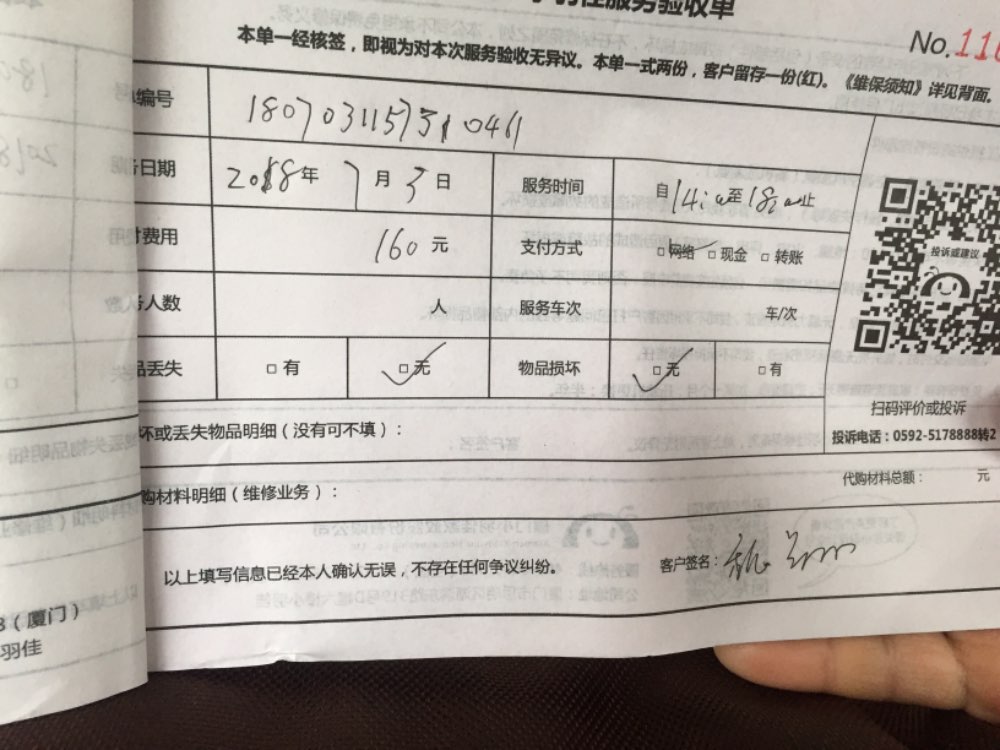 服务验收单
No.116
本单一经核签，即视为对本次服务验收无异议。本单一式两份，客户留存一份(红)。《维保须知》详见背面。
编号 180703115731046
日期 2018年 7月3日 服务时间 自 14: 至 18: 止
费用 160元 支付方式 □网络 □现金 □转账
人数 人 服务车次 车/次
品丢失 □有 □无 物品损坏 □无 □有
投诉或建议
扫码评价或投诉
投诉电话：0592-5178888转2
坏或丢失物品明细（没有可不填）：
购材料明细（维修业务）： 代购材料总额： 元
以上填写信息已经本人确认无误，不存在任何争议纠纷。 客户签名：
（厦门）
羽佳